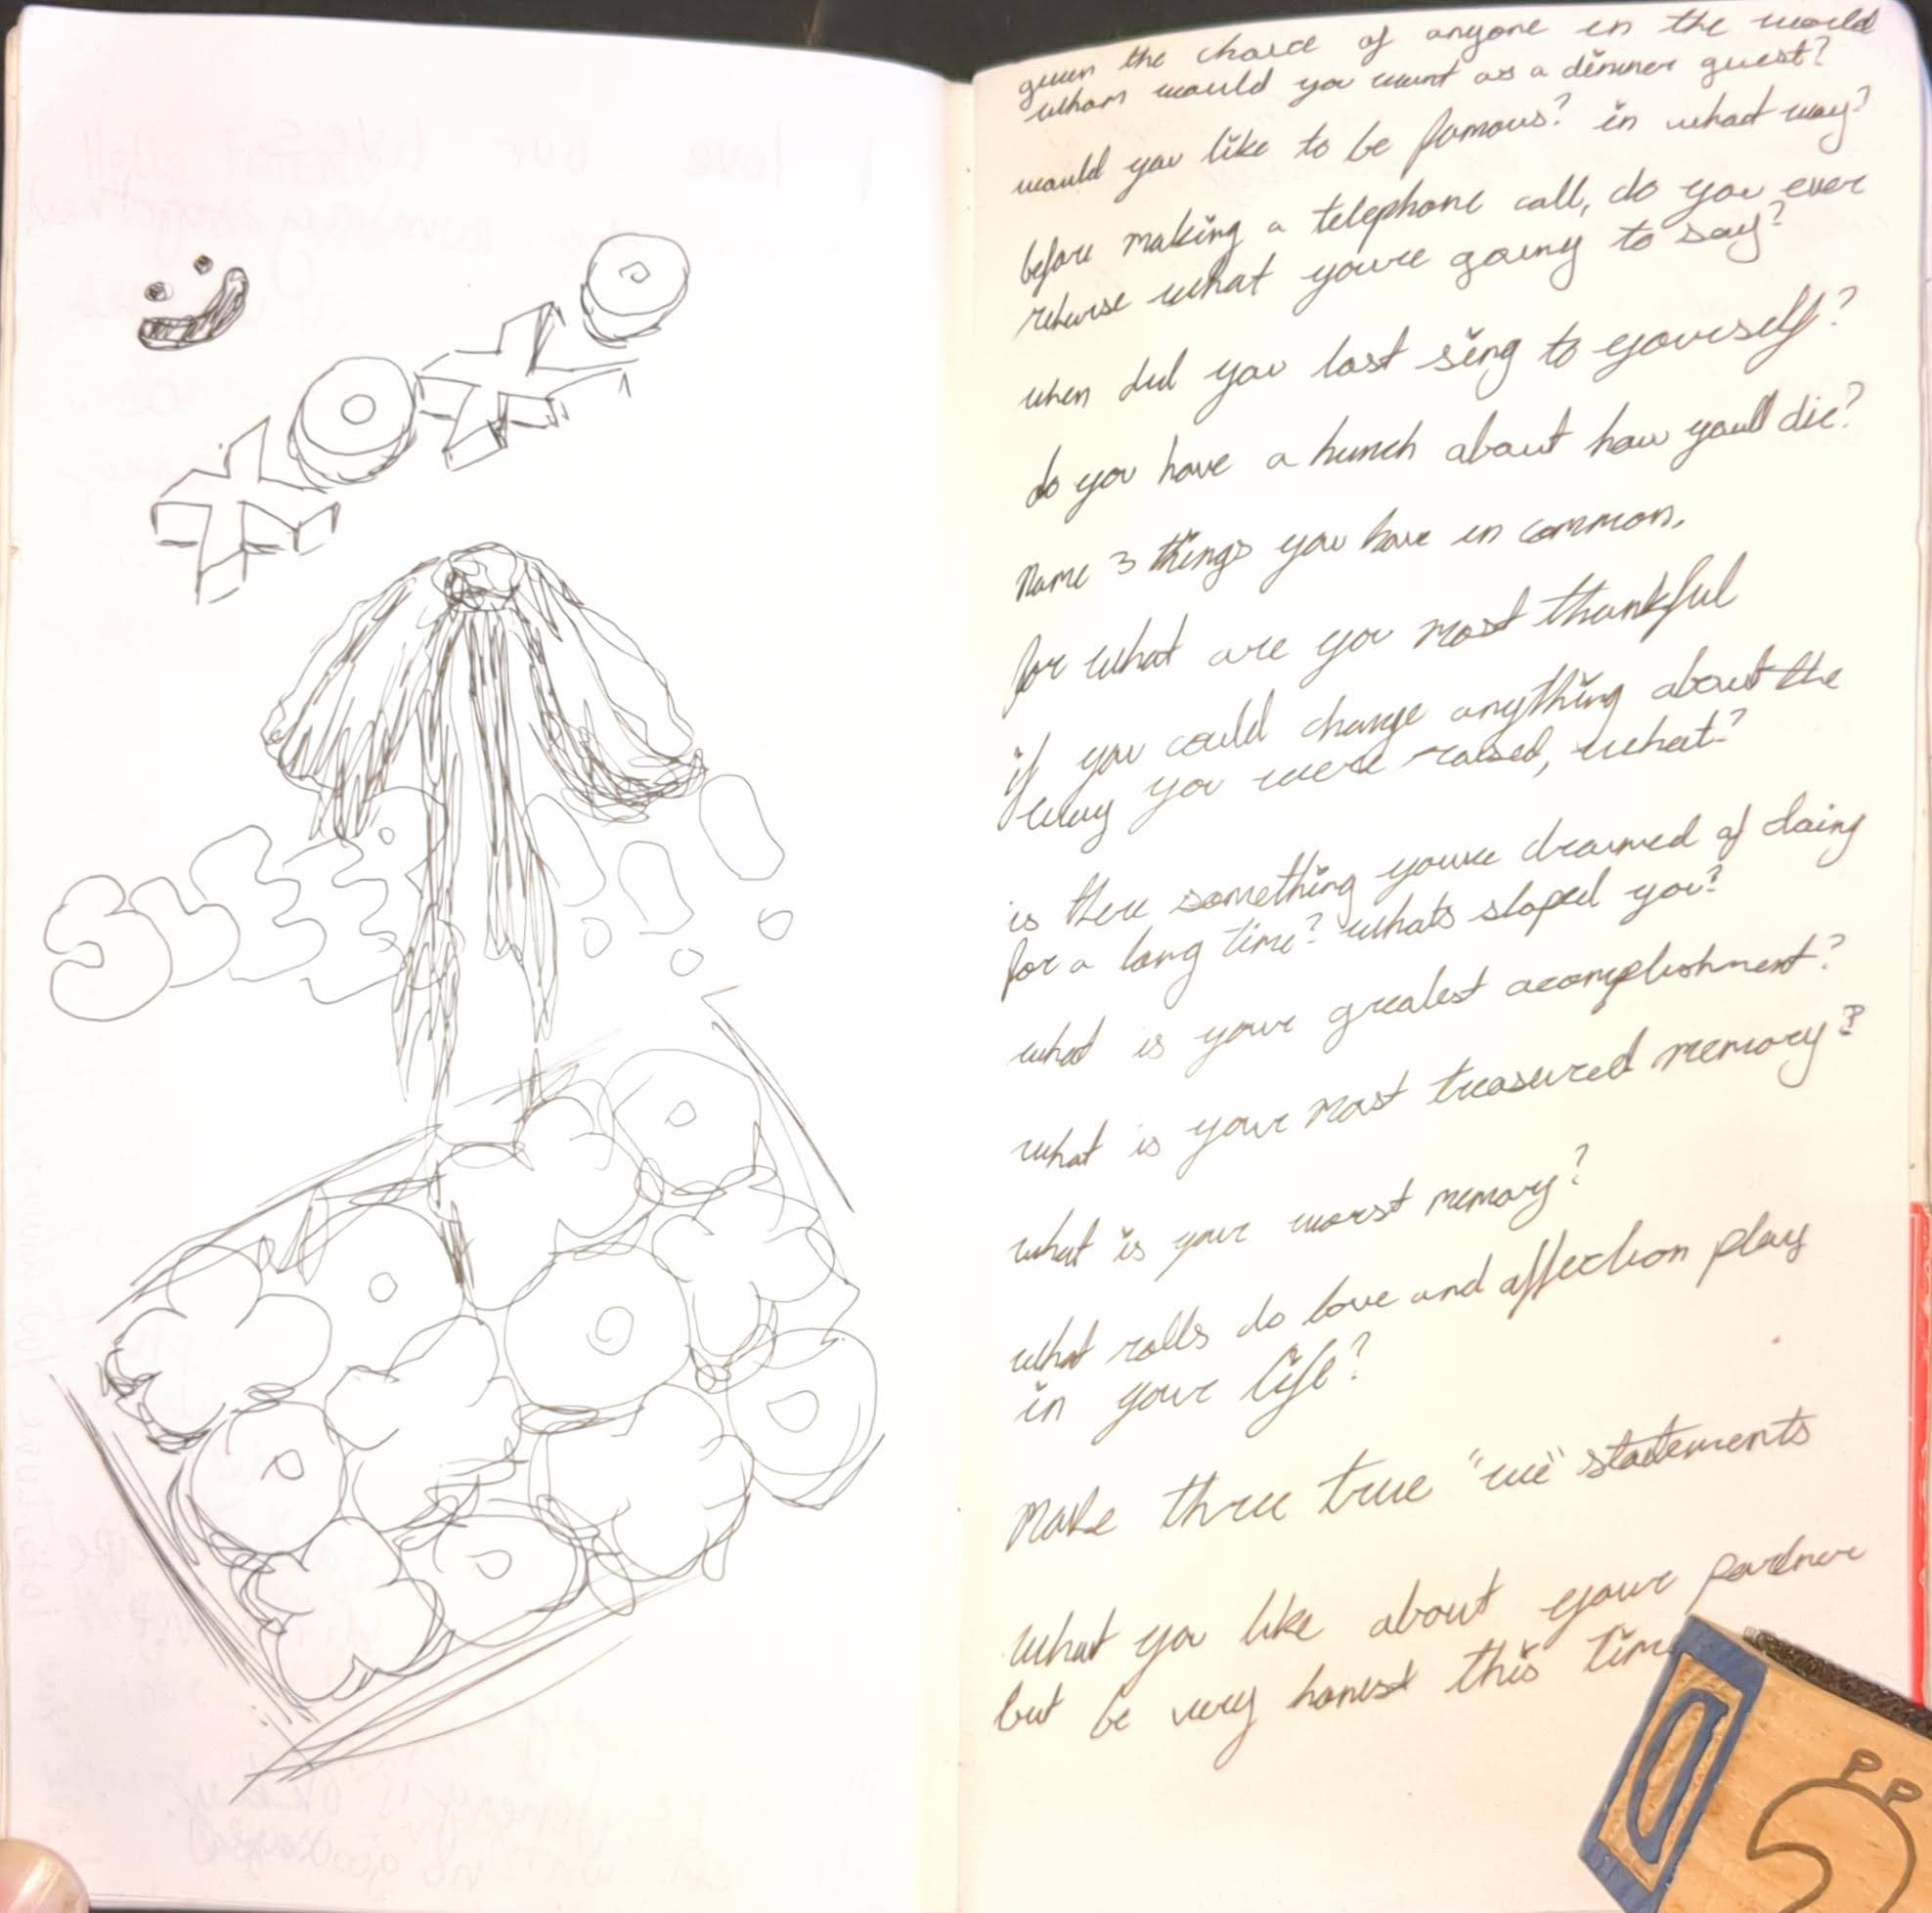 XOXO
SLEE
given the choice of anyone in the world
whom would you want as a dinner guest?
would you like to be famous? in what way?
before making a telephone call, do you ever
rehurse what you're going to say?
when did you last sing to yourself?
do you have a hunch about how youll die?
Name 3 things you have in common.
for what are you most thankful
if you could change anything about the
way you were raised, what?
is there something youve dreamed of doing
for a long time? whats stoped you?
what is your greatest acomplishment?
what is your most treasured memory?
what is your worst memory?
what rolls do love and affection play
in your life?
Make three true "we" statements
what you like about your partner
but be very honest this time